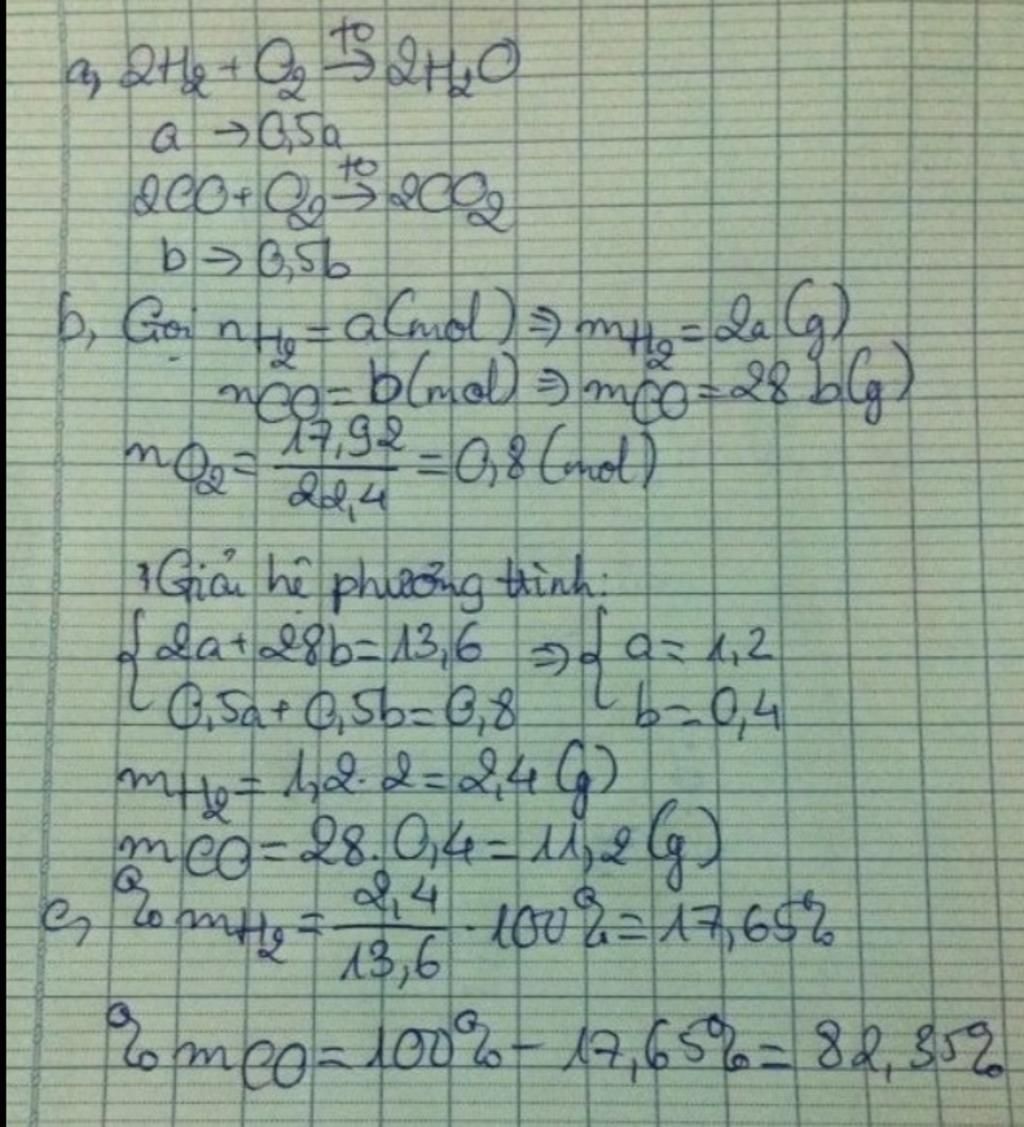 a, 2H₂ + O₂ →(t°) 2H₂O
a → 0,5a
2CO + O₂ →(t°) 2CO₂
b → 0,5b
b, Gọi nH₂ = a(mol) ⇒ mH₂ = 2a (g)
nCO = b(mol) ⇒ mCO = 28b(g)
nO₂ = 17,92/22,4 = 0,8 (mol)
Giải hệ phương trình:
{ 2a + 28b = 13,6 ⇒ { a = 1,2
0,5a + 0,5b = 0,8 b = 0,4
mH₂ = 1,2 . 2 = 2,4 (g)
mCO = 28. 0,4 = 11,2 (g)
c, % mH₂ = 2,4/13,6 . 100% = 17,65%
% mCO = 100% - 17,65% = 82,35%